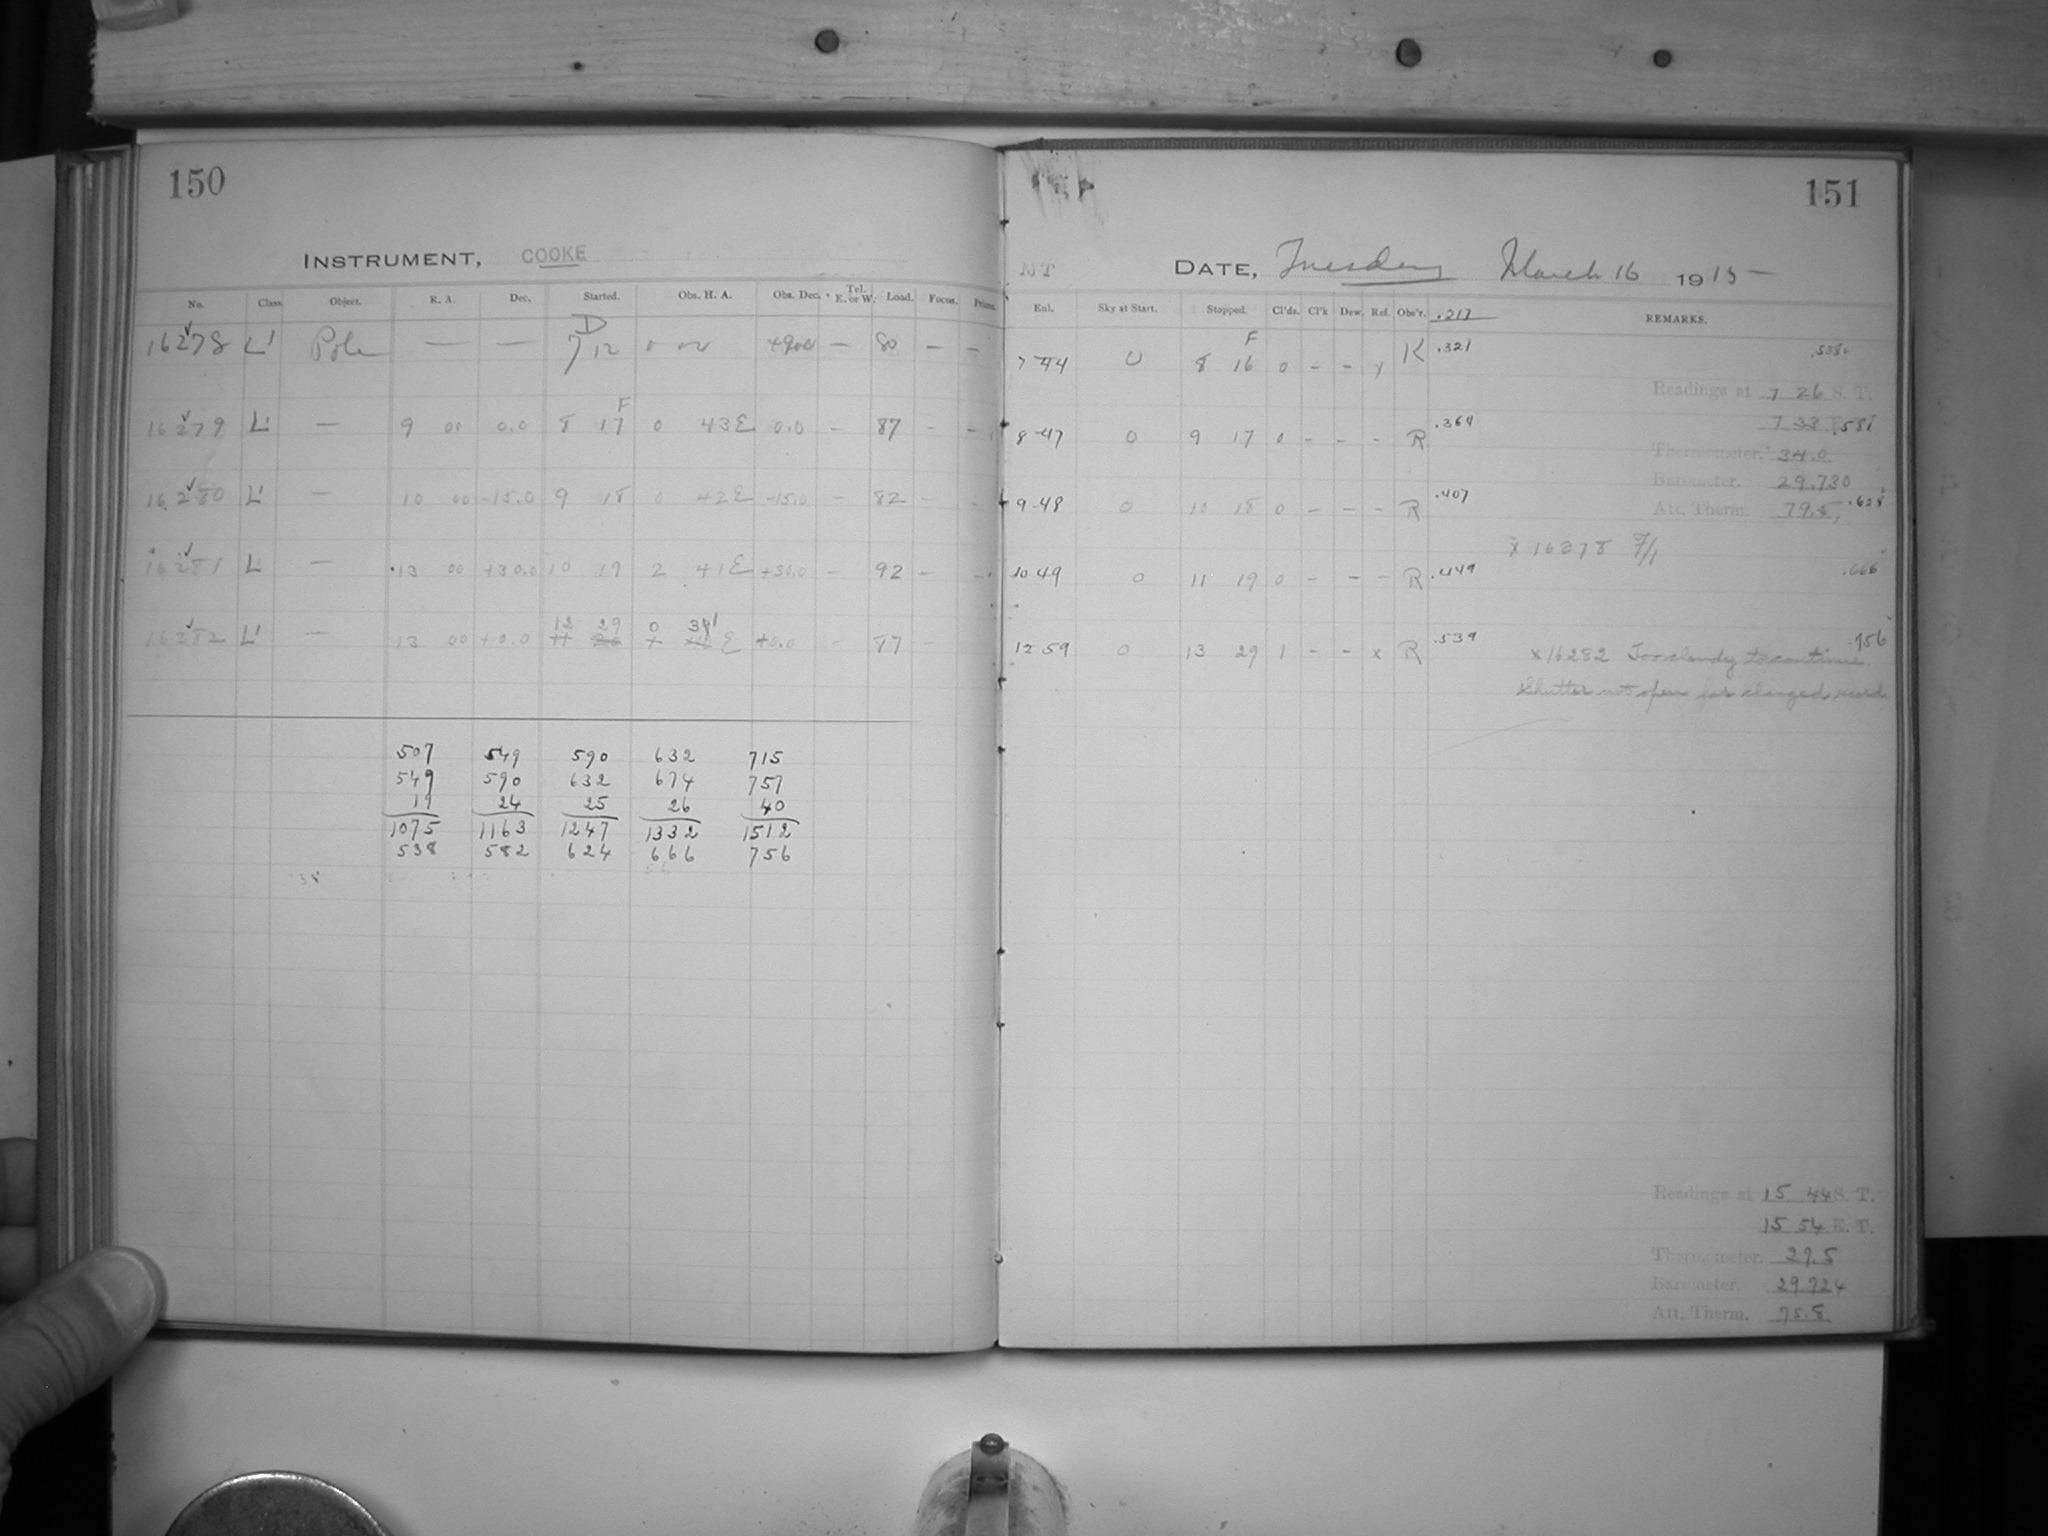 150
INSTRUMENT, COOKE
No. Class. Object. R. A. Dec. Started. Obs. H. A. Obs. Dec. Tel. E. or W. Load. Focus. Prisms.
D
16278 L' Pole — — 7 12 — 80 — —
F
16279 L' — 9 00 0.0 8 17 0 43 E 0.0 – 87 – –
16280 L' — 10 00 -15.0 9 18 0 42 E -15.0 – 82 –
16281 L' — 13 00 +30.0 10 19 2 41 E +30.0 – 92 – –
12 29 0 31
16282 L' — 13 00 +0.0 E +0.0 – 87 –
507 549 590 632 715
549 590 632 674 757
19 24 25 26 40
1075 1163 1247 1332 1512
538 582 624 666 756
151
NT DATE, Tuesday March 16 1915 —
Enl. Sky at Start. Stopped. Cl'ds. Cl'k Dew. Ref. Obs'r. .217 REMARKS.
F
7 44 0 8 16 0 – – K .321 .538
Readings at 7 26 S. T.
8 47 0 9 17 0 – – – R .364 7 33 .581
Thermometer. 34.0
Barometer. 29.730
9 48 0 10 18 0 – – – R .407 Att. Therm. 79.5 .624
x 16278 F/1
10 49 0 11 19 0 – – – R .449 .666
12 59 0 13 29 1 – – x R .539 x16282 Too cloudy to continue. .756
Shutter not open for changed record
Readings at 15 44 S. T.
15 54 E. T.
Thermometer. 27.5
Barometer. 29.724
Att. Therm. 75.8